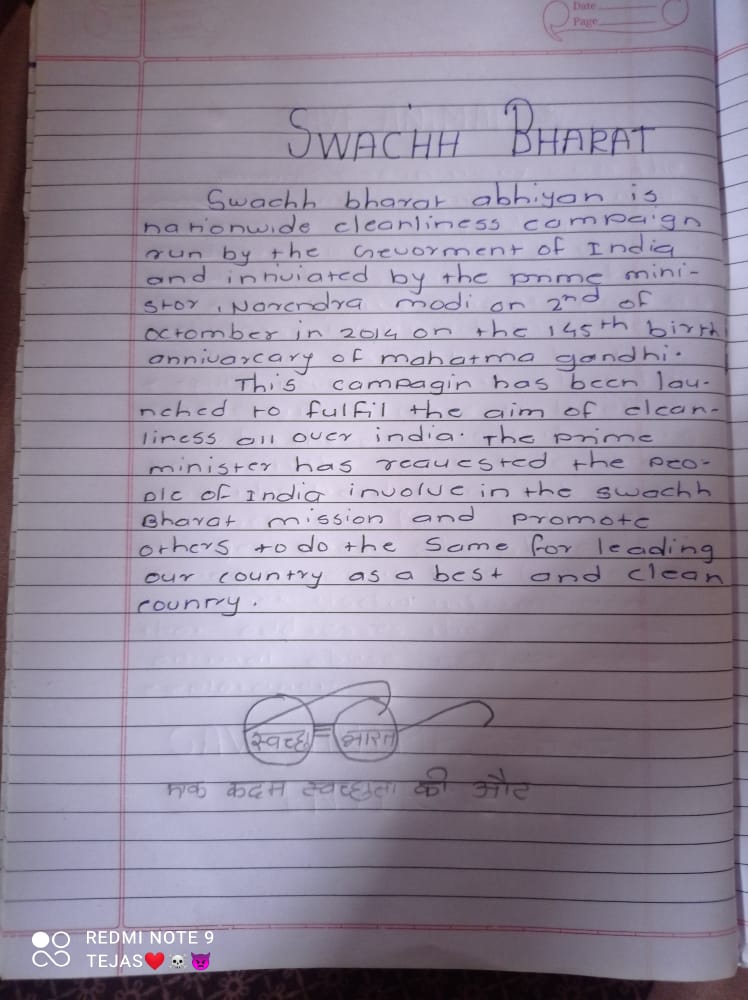 Date
Page
SWACHH BHARAT
Swachh bharat abhiyan is
nationwide cleanliness campaign
run by the Gevorment of India
and intiviated by the prime mini-
stor, Narendra modi on 2nd of
octomber in 2014 on the 145th birth
annivarcary of mahatma gandhi.
This campagin has been lau-
nched to fulfil the aim of clean-
liness all over india. The prime
minister has requested the peo-
ple of India involve in the swachh
Bharat mission and promote
others to do the same for leading
our country as a best and clean
country.
स्वच्छ भारत
एक कदम स्वच्छता की और
REDMI NOTE 9
TEJAS❤️☠️👿